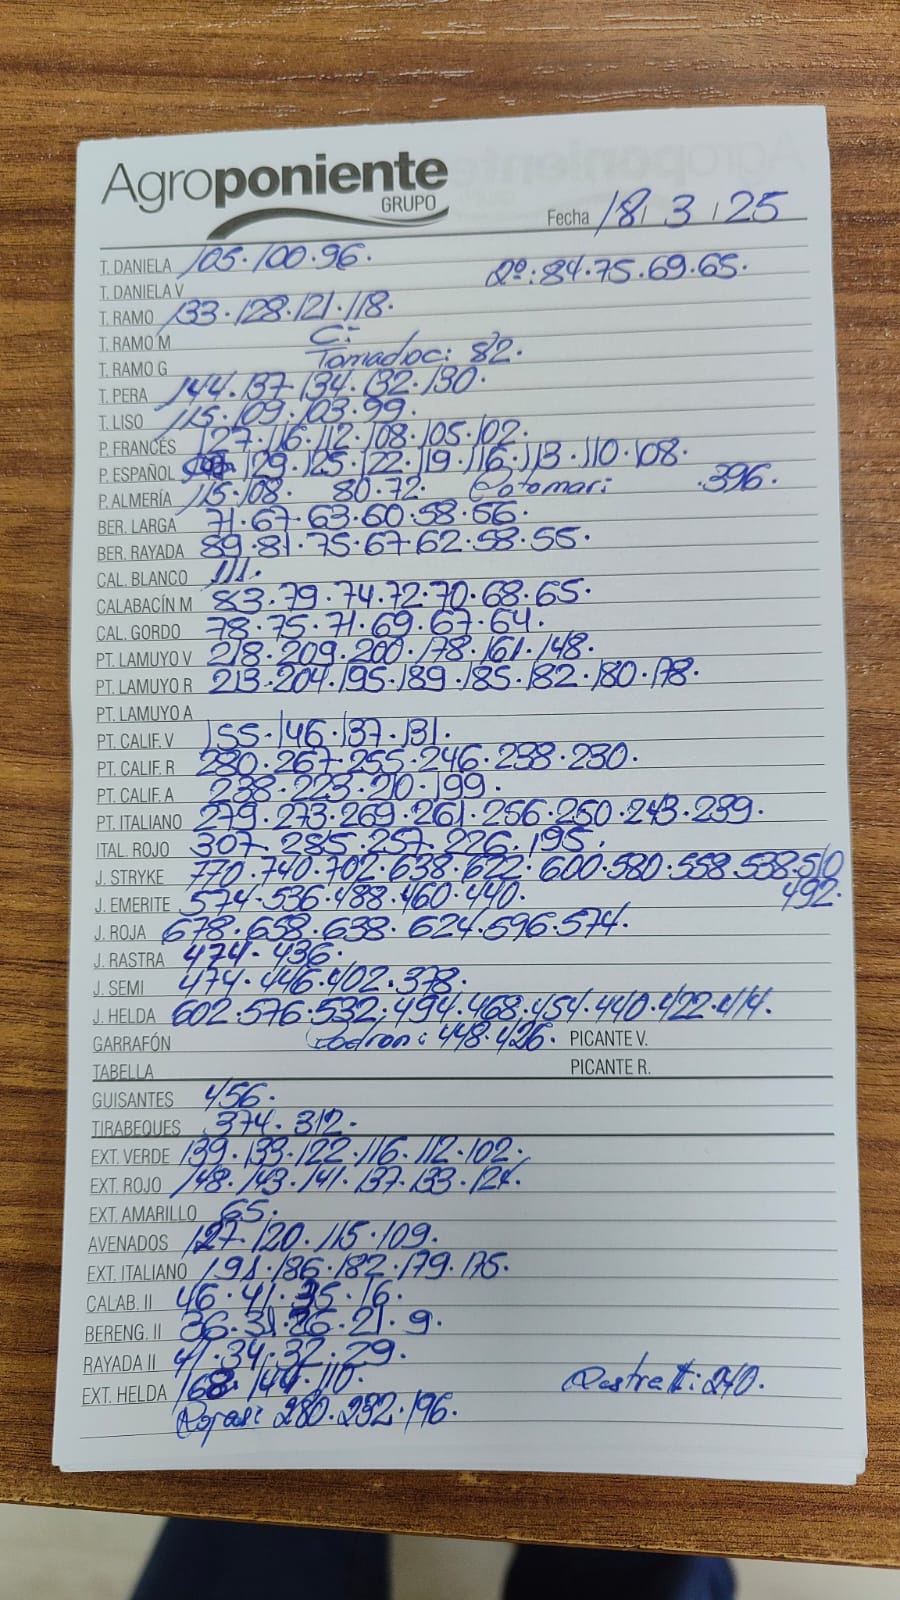 Agroponiente
GRUPO
Fecha 18/3/25
T. DANIELA 105.100.96.
T. DANIELA V 2º:84.75.69.65.
T. RAMO 133.128.121.118.
T. RAMO M C:
T. RAMO G Tomadoc: 82.
T. PERA 144.137.134.132.130.
T. LISO 115.109.103.99.
P. FRANCÉS 127.116.112.108.105.102.
P. ESPAÑOL 129.125.122.119.116.113.110.108.
P. ALMERÍA 115.108. 80.72. .396.
BER. LARGA 71.67.63.60.58.56.
BER. RAYADA 89.81.75.67.62.58.55.
CAL. BLANCO 111.
CALABACÍN M 83.79.74.72.70.68.65.
CAL. GORDO 78.75.71.69.67.64.
PT. LAMUYO V 218.209.200.178.161.148.
PT. LAMUYO R 213.204.195.189.185.182.180.178.
PT. LAMUYO A
PT. CALIF. V 155.146.137.131.
PT. CALIF. R 280.267.255.246.238.230.
PT. CALIF. A 238.223.210.199.
PT. ITALIANO 279.273.269.261.256.250.243.239.
ITAL. ROJO 307.285.257.226.195.
J. STRYKE 770.740.702.638.622.600.580.558.538.510
J. EMERITE 574.536.488.460.440. 492.
J. ROJA 678.658.638.624.596.574.
J. RASTRA 474.436.
J. SEMI 474.446.402.378.
J. HELDA 602.576.532.494.468.454.440.422.414.
GARRAFÓN Padron: 448.426. PICANTE V.
TABELLA PICANTE R.
GUISANTES 456.
TIRABEQUES 374.312.
EXT. VERDE 139.133.122.116.112.102.
EXT. ROJO 148.143.141.137.133.124.
EXT. AMARILLO 65.
AVENADOS 127.120.115.109.
EXT. ITALIANO 191.186.182.179.175.
CALAB. II 46.41.35.16.
BERENG. II 36.31.26.21.9.
RAYADA II 41.34.32.29.
EXT. HELDA 168.144.110. Rastra II: 240.
Rojas: 280.232.196.